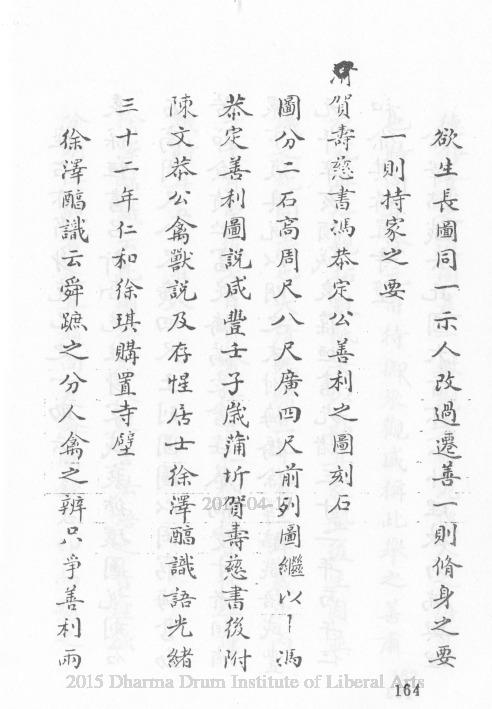 欲生長圖同一示人改過遷善一則脩身之要
一則持家之要
清賀壽慈書馮恭定公善利之圖刻石
圖分二石高周尺八尺廣四尺前列圖繼以馮
恭定善利圖説咸豐壬子歲蒲圻賀壽慈書後附
陳文恭公禽獸説及存惺居士徐澤醕識語光緒
三十二年仁和徐琪購置寺壁
徐澤醕識云舜蹠之分人禽之辨只爭善利兩
2015 Dharma Drum Institute of Liberal Arts
164